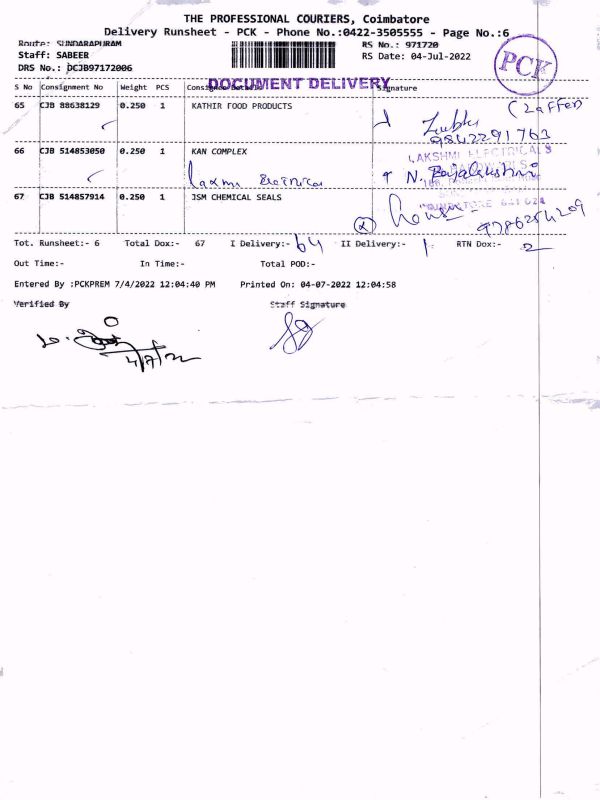 THE PROFESSIONAL COURIERS, Coimbatore
Delivery Runsheet - PCK - Phone No.:0422-3505555 - Page No.:6
Route: SUNDARAPURAM
RS No.: 971720
Staff: SABEER
RS Date: 04-Jul-2022
DRS No.: DCJB97172006
PCK
DOCUMENT DELIVERY
S No Consignment No Weight PCS Consignee Details Signature
65 CJB 88638129 0.250 1 KATHIR FOOD PRODUCTS
9842291761
66 CJB 514853050 0.250 1 KAN COMPLEX
LAKSHMI ELECTRICALS
N.
67 CJB 514857914 0.250 1 JSM CHEMICAL SEALS
641 024
9786254209
Tot. Runsheet:- 6 Total Dox:- 67 I Delivery:- 64 II Delivery:- 1 RTN Dox:- 2
Out Time:- In Time:- Total POD:-
Entered By :PCKPREM 7/4/2022 12:04:40 PM Printed On: 04-07-2022 12:04:58
Verified By Staff Signature
4/7/22